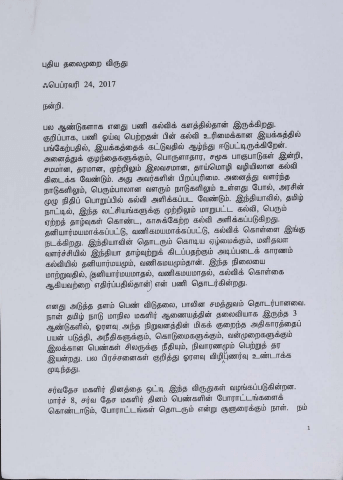 புதிய தலைமுறை விருது
ஃபெப்ரவரி 24, 2017
நன்றி.
பல ஆண்டுகளாக எனது பணி கல்விக் களத்தில்தான் இருக்கிறது.
குறிப்பாக, பணி ஓய்வு பெற்றதன் பின் கல்வி உரிமைக்கான இயக்கத்தில்
பங்கேற்பதில், இயக்கத்தைக் கட்டுவதில் ஆழ்ந்து ஈடுபட்டிருக்கிறேன்.
அனைத்துக் குழந்தைகளுக்கும், பொருளாதார, சமூக பாகுபாடுகள் இன்றி,
சமமான, தரமான, முற்றிலும் இலவசமான, தாய்மொழி வழியிலான கல்வி
கிடைக்க வேண்டும். அது அவர்களின் பிறப்புரிமை. அனைத்து வளர்ந்த
நாடுகளிலும், பெரும்பாலான வளரும் நாடுகளிலும் உள்ளது போல், அரசின்
முழு நிதிப் பொறுப்பில் கல்வி அளிக்கப்பட வேண்டும். இந்தியாவில், தமிழ்
நாட்டில், இந்த லட்சியங்களுக்கு முற்றிலும் மாறுபட்ட கல்வி, பெரும்
ஏற்றத் தாழ்வுகள் கொண்ட, காசுக்கேற்ற கல்வி அளிக்கப்படுகிறது.
தனியார்மயமாக்கப்பட்டு, வணிகமயமாக்கப்பட்டு, கல்விக் கொள்ளை இங்கு
நடக்கிறது. இந்தியாவின் தொடரும் கொடிய ஏழ்மைக்கும், மனிதவள
வளர்ச்சியில் இந்தியா தாழ்வுற்றுக் கிடப்பதற்கும் அடிப்படைக் காரணம்
கல்வியில் தனியார்மயமும், வணிகமயமும்தான். இந்த நிலையை
மாற்றுவதில், (தனியார்மயமாதல், வணிகமயமாதல், கல்விக் கொள்கை
ஆகியவற்றை எதிர்ப்பதில்தான்) என் பணி தொடர்கின்றது.
எனது அடுத்த தளம் பெண் விடுதலை, பாலின சமத்துவம் தொடர்பானவை.
நான் தமிழ் நாடு மாநில மகளிர் ஆணையத்தின் தலைவியாக இருந்த 3
ஆண்டுகளில், ஓரளவு அந்த நிறுவனத்தின் மிகக் குறைந்த அதிகாரத்தைப்
பயன் படுத்தி, அநீதிகளுக்கும், கொடுமைகளுக்கும், வன்முறைகளுக்கும்
இலக்கான பெண்கள் சிலருக்கு நீதியும், நிவாரணமும் பெற்றுத் தர
இயன்றது. பல பிரச்சனைகள் குறித்து ஓரளவு விழிப்புணர்வு உண்டாக்க
முடிந்தது.
சர்வதேச மகளிர் தினத்தை ஒட்டி இந்த விருதுகள் வழங்கப்படுகின்றன.
மார்ச் 8, சர்வ தேச மகளிர் தினம் பெண்களின் போராட்டங்களைக்
கொண்டாடும், போராட்டங்கள் தொடரும் என்று சூளுரைக்கும் நாள். நம்
1